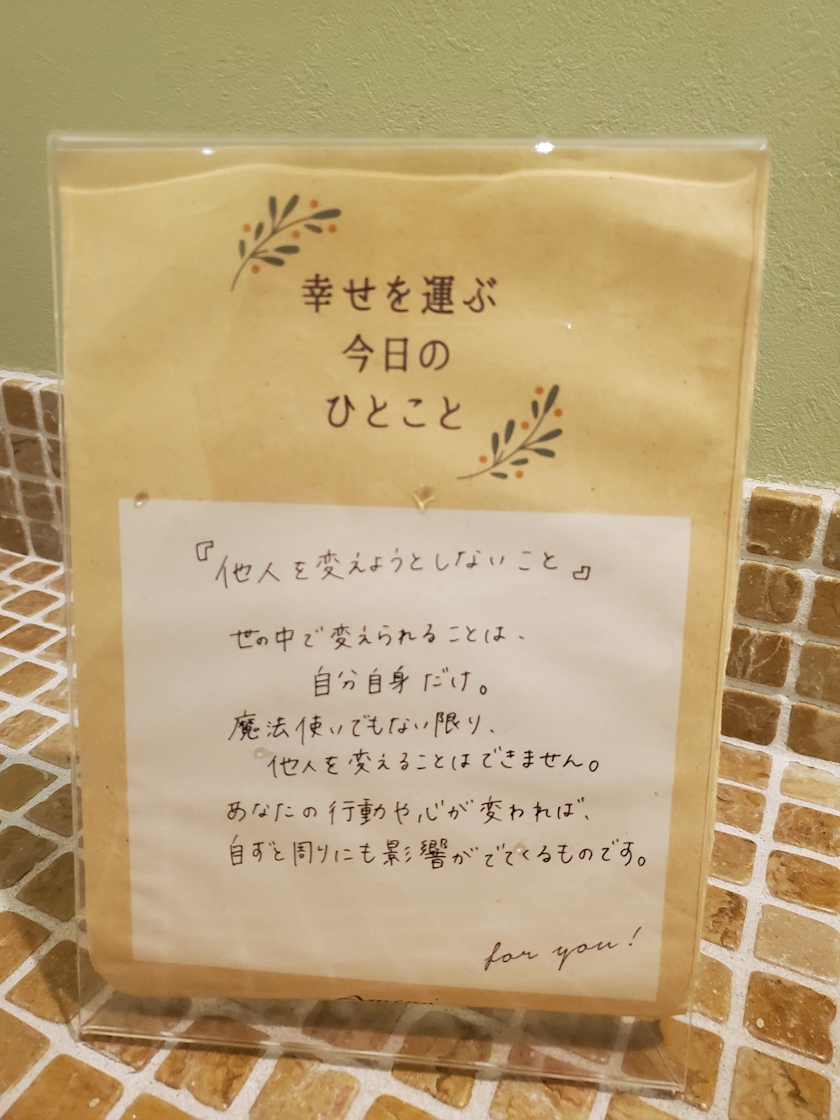 幸せを運ぶ
今日の
ひとこと
『他人を変えようとしないこと』
世の中で変えられることは、
自分自身だけ。
魔法使いでもない限り、
他人を変えることはできません。
あなたの行動や心が変われば、
自ずと周りにも影響がでてくるものです。
for you!